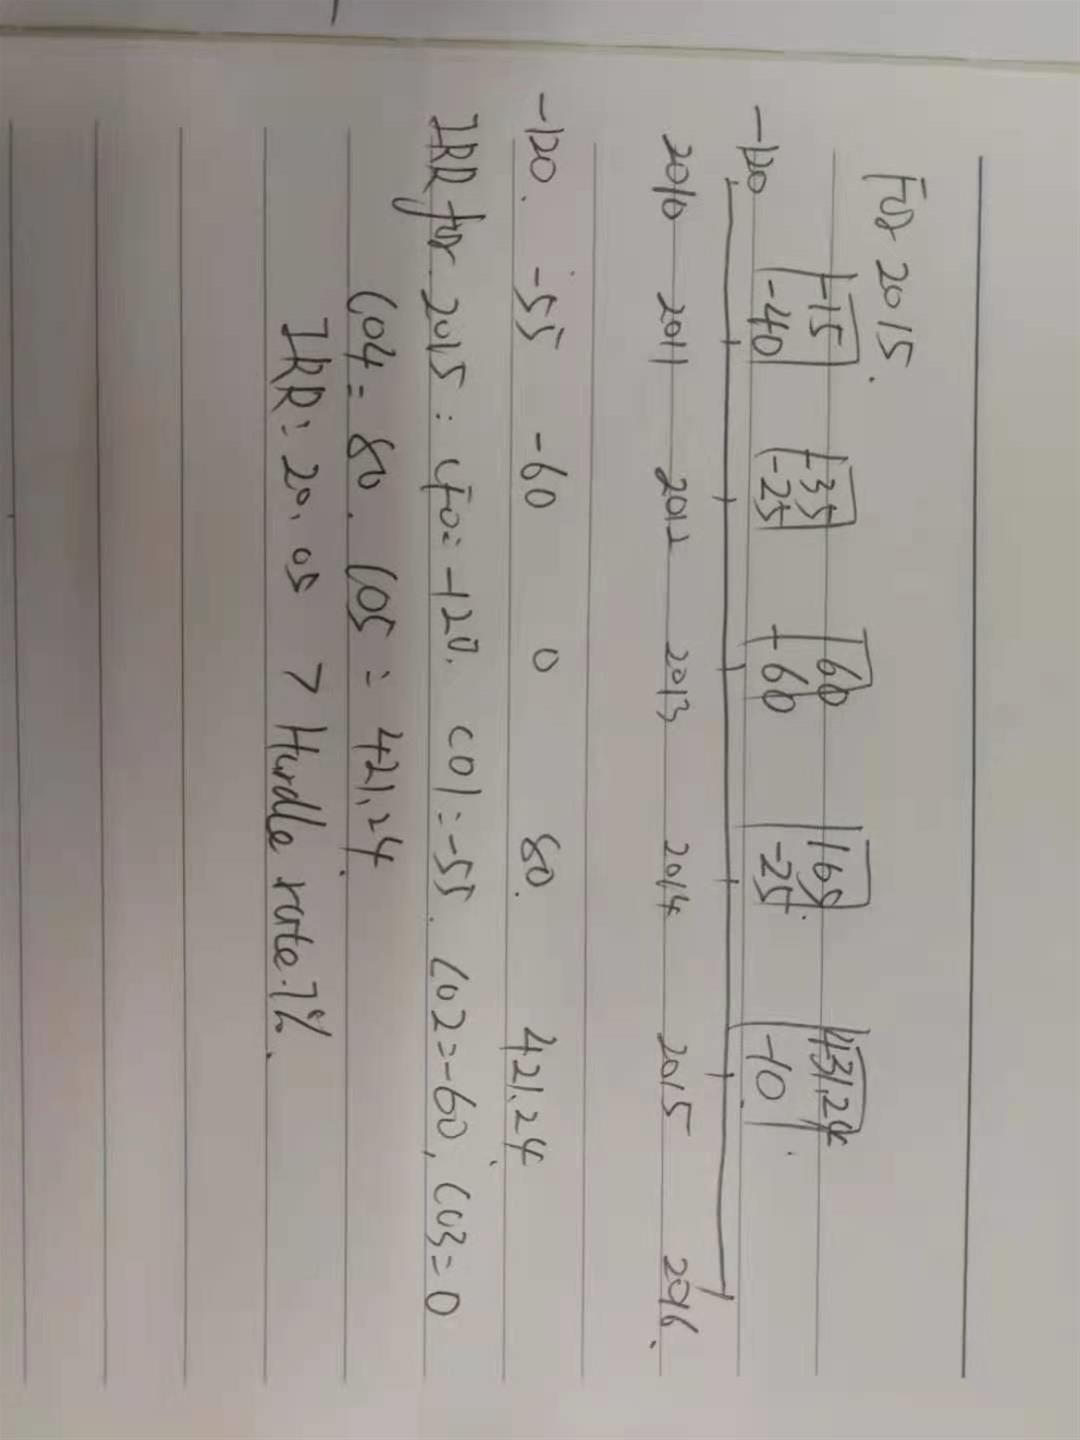 For 2015.
-15 -35 60 165 431.24
-120 -40 -25 -60 -25. -10.
2010 2011 2012 2013 2014 2015 2016.
-120. -55 -60 0 80. 421.24
IRR for 2015: CF0=-120. C01=-55. C02=-60, C03=0
C04=80. C05=421.24.
IRR=20.05 > Hurdle rate 7%.